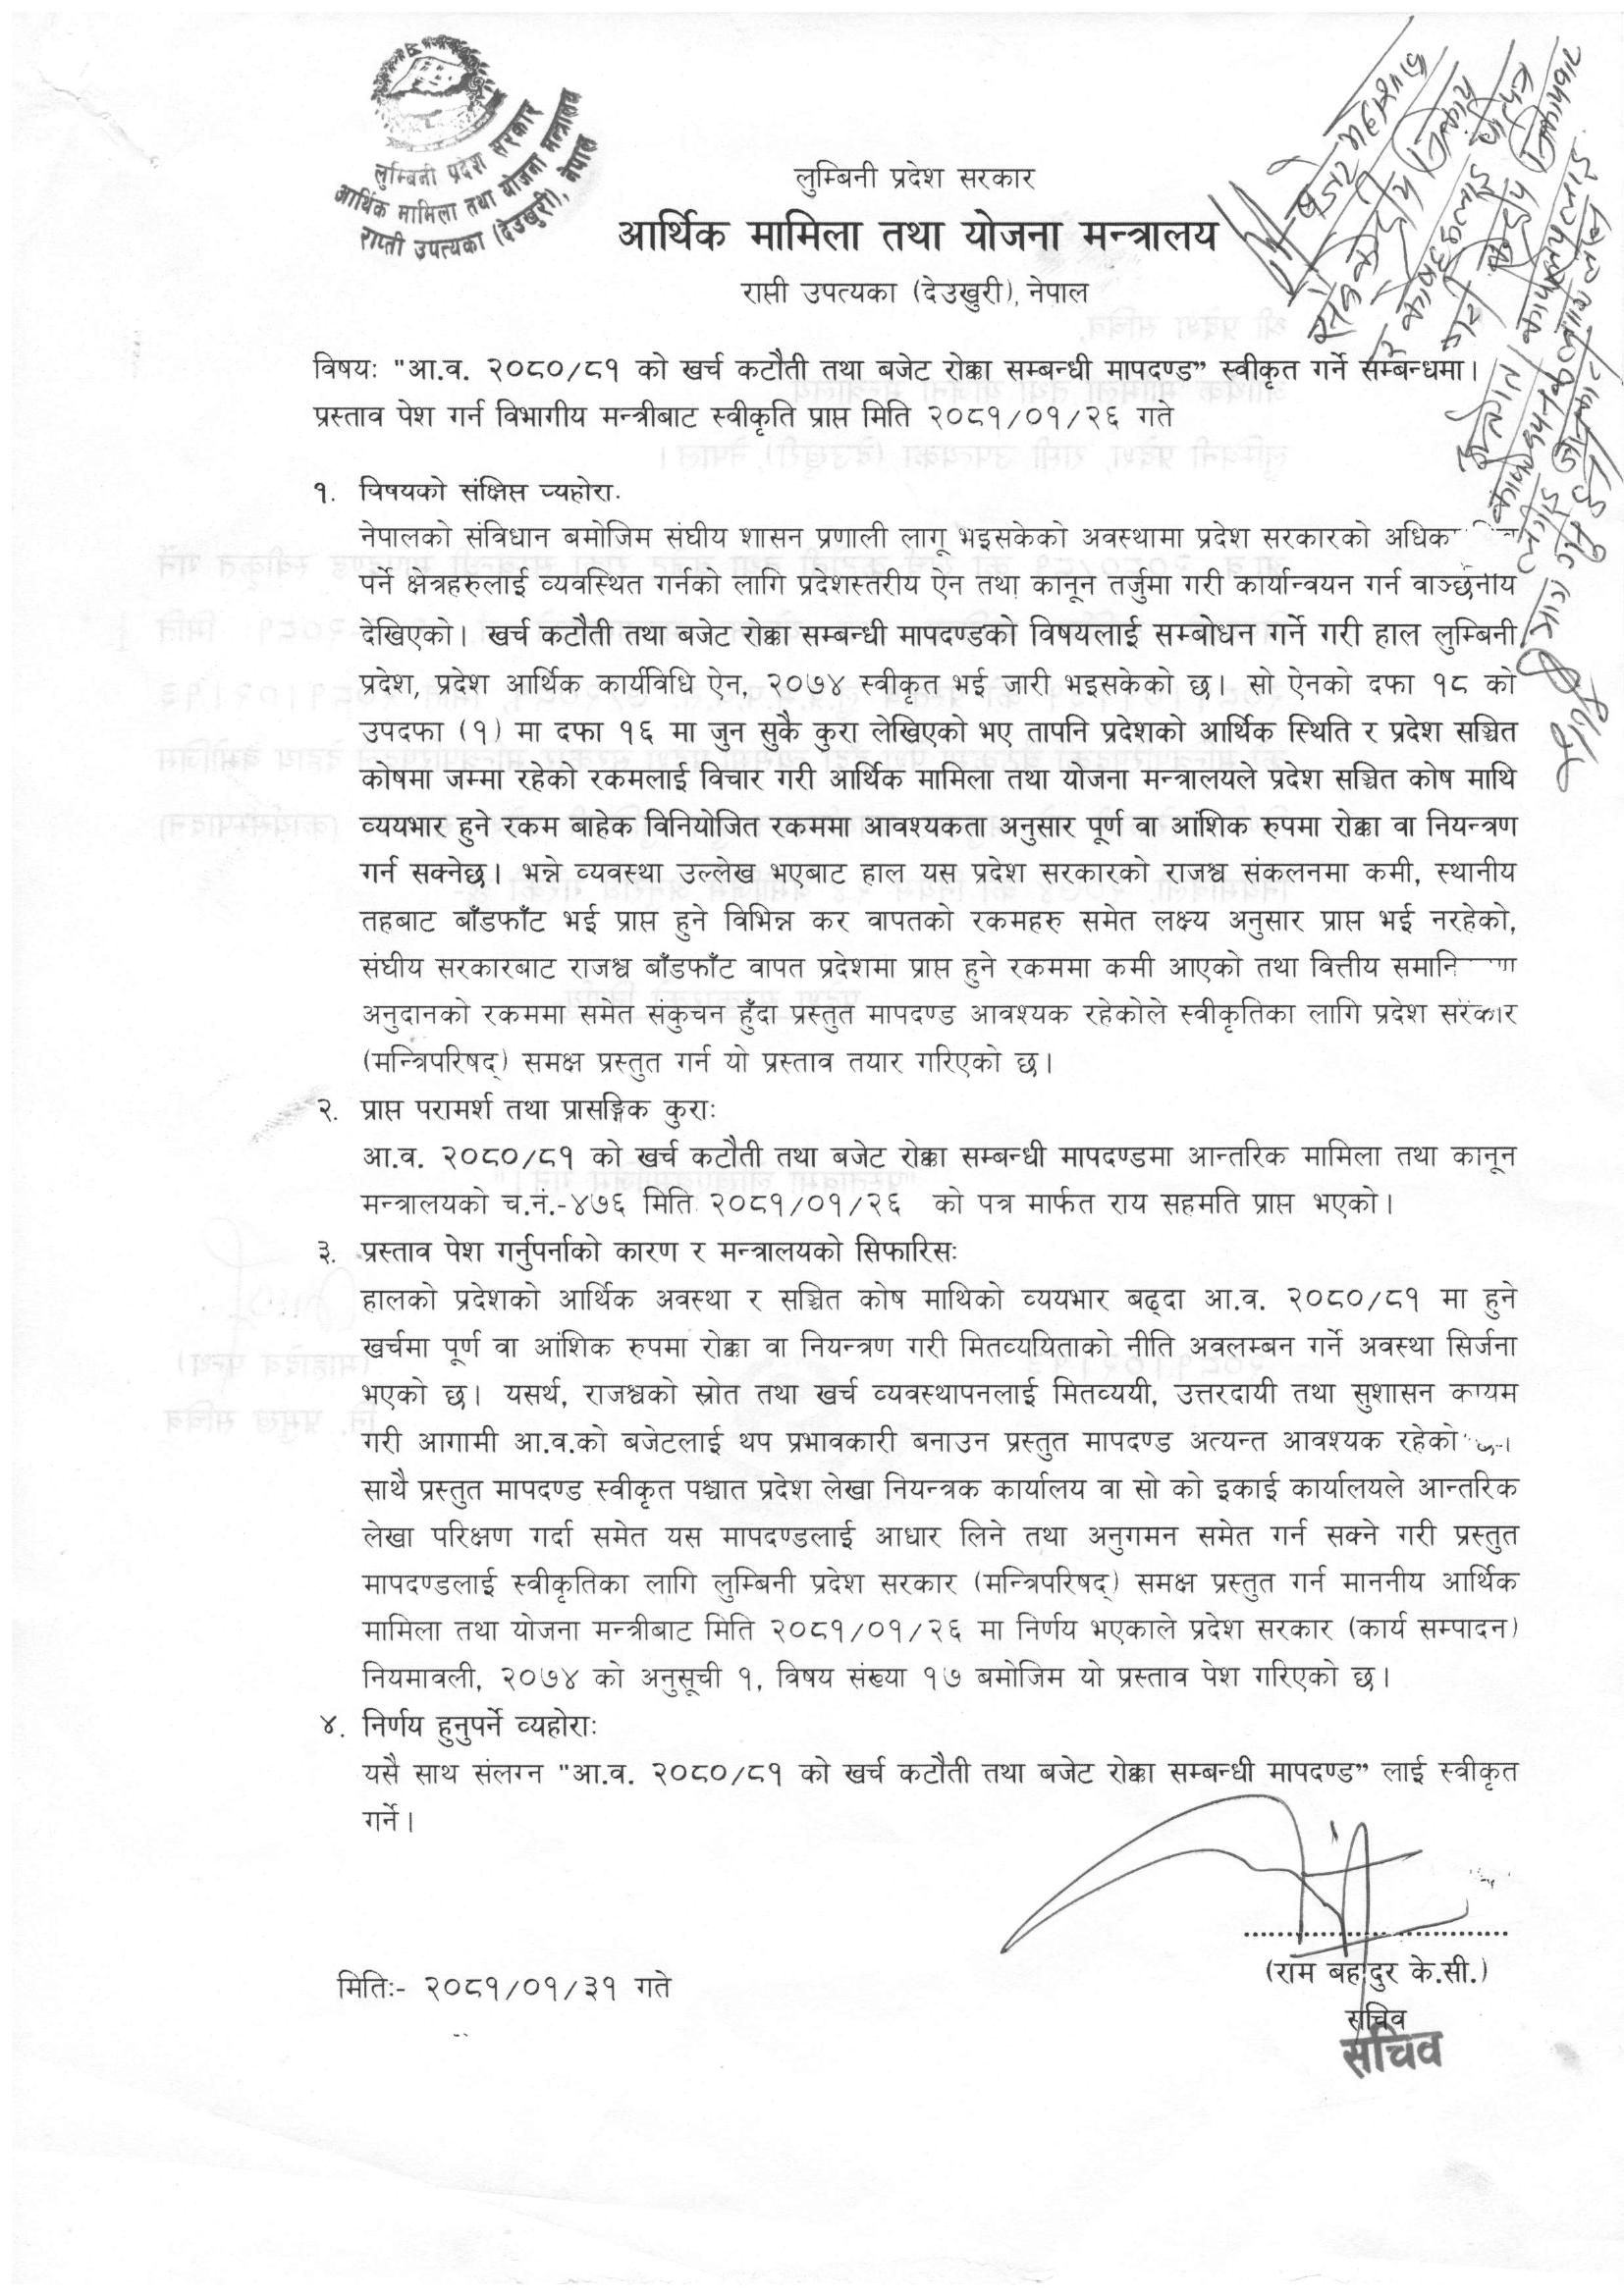 लुम्बिनी प्रदेश सरकार
आर्थिक मामिला तथा योजना मन्त्रालय
राप्ती उपत्यका (देउखुरी), नेपाल
लुम्बिनी प्रदेश सरकार
आर्थिक मामिला तथा योजना मन्त्रालय
राप्ती उपत्यका (देउखुरी), नेपाल
विषयः "आ.व. २०८०/८१ को खर्च कटौती तथा बजेट रोक्का सम्बन्धी मापदण्ड” स्वीकृत गर्ने सम्बन्धमा।
प्रस्ताव पेश गर्न विभागीय मन्त्रीबाट स्वीकृति प्राप्त मिति २०८१/०१/२६ गते
१. विषयको संक्षिप्त व्यहोरा.
नेपालको संविधान बमोजिम संघीय शासन प्रणाली लागू भइसकेको अवस्थामा प्रदेश सरकारको
पर्ने क्षेत्रहरुलाई व्यवस्थित गर्नको लागि प्रदेशस्तरीय ऐन तथा कानून तर्जुमा गरी कार्यान्वयन गर्न वाञ्छनीय
देखिएको। खर्च कटौती तथा बजेट रोक्का सम्बन्धी मापदण्डको विषयलाई सम्बोधन गर्ने गरी हाल लुम्बिनी
प्रदेश, प्रदेश आर्थिक कार्यविधि ऐन, २०७४ स्वीकृत भई जारी भइसकेको छ। सो ऐनको दफा १८ को
उपदफा (१) मा दफा १६ मा जुन सुकै कुरा लेखिएको भए तापनि प्रदेशको आर्थिक स्थिति र प्रदेश सञ्चित
कोषमा जम्मा रहेको रकमलाई विचार गरी आर्थिक मामिला तथा योजना मन्त्रालयले प्रदेश सञ्चित कोष माथि
व्ययभार हुने रकम बाहेक विनियोजित रकममा आवश्यकता अनुसार पूर्ण वा आंशिक रुपमा रोक्का वा नियन्त्रण
गर्न सक्नेछ। भन्ने व्यवस्था उल्लेख भएबाट हाल यस प्रदेश सरकारको राजश्व संकलनमा कमी, स्थानीय
तहबाट बाँडफाँट भई प्राप्त हुने विभिन्न कर वापतको रकमहरु समेत लक्ष्य अनुसार प्राप्त भई नरहेको,
संघीय सरकारबाट राजश्व बाँडफाँट वापत प्रदेशमा प्राप्त हुने रकममा कमी आएको तथा वित्तीय
अनुदानको रकममा समेत संकुचन हुँदा प्रस्तुत मापदण्ड आवश्यक रहेकोले स्वीकृतिका लागि प्रदेश सरकार
(मन्त्रिपरिषद्) समक्ष प्रस्तुत गर्न यो प्रस्ताव तयार गरिएको छ।
२. प्राप्त परामर्श तथा प्रासङ्गिक कुराः
आ.व. २०८०/८१ को खर्च कटौती तथा बजेट रोक्का सम्बन्धी मापदण्डमा आन्तरिक मामिला तथा कानून
मन्त्रालयको च.नं.-४७६ मिति २०८१/०१/२६ को पत्र मार्फत राय सहमति प्राप्त भएको।
३. प्रस्ताव पेश गर्नुपर्नाको कारण र मन्त्रालयको सिफारिसः
हालको प्रदेशको आर्थिक अवस्था र सञ्चित कोष माथिको व्ययभार बढ्दा आ.व. २०८०/८१ मा हुने
खर्चमा पूर्ण वा आंशिक रुपमा रोक्का वा नियन्त्रण गरी मितव्ययिताको नीति अवलम्बन गर्ने अवस्था सिर्जना
भएको छ। यसर्थ, राजश्वको स्रोत तथा खर्च व्यवस्थापनलाई मितव्ययी, उत्तरदायी तथा सुशासन कायम
गरी आगामी आ.व.को बजेटलाई थप प्रभावकारी बनाउन प्रस्तुत मापदण्ड अत्यन्त आवश्यक रहेको छ।
साथै प्रस्तुत मापदण्ड स्वीकृत पश्चात प्रदेश लेखा नियन्त्रक कार्यालय वा सो को इकाई कार्यालयले आन्तरिक
लेखा परिक्षण गर्दा समेत यस मापदण्डलाई आधार लिने तथा अनुगमन समेत गर्न सक्ने गरी प्रस्तुत
मापदण्डलाई स्वीकृतिका लागि लुम्बिनी प्रदेश सरकार (मन्त्रिपरिषद्) समक्ष प्रस्तुत गर्न माननीय आर्थिक
मामिला तथा योजना मन्त्रीबाट मिति २०८१/०१/२६ मा निर्णय भएकाले प्रदेश सरकार (कार्य सम्पादन)
नियमावली, २०७४ को अनुसूची १, विषय संख्या १७ बमोजिम यो प्रस्ताव पेश गरिएको छ।
४. निर्णय हुनुपर्ने व्यहोराः
यसै साथ संलग्न "आ.व. २०८०/८१ को खर्च कटौती तथा बजेट रोक्का सम्बन्धी मापदण्ड” लाई स्वीकृत
गर्ने।
(राम बहादुर के.सी.)
मितिः- २०८१/०१/३१ गते
सचिव
सचिव